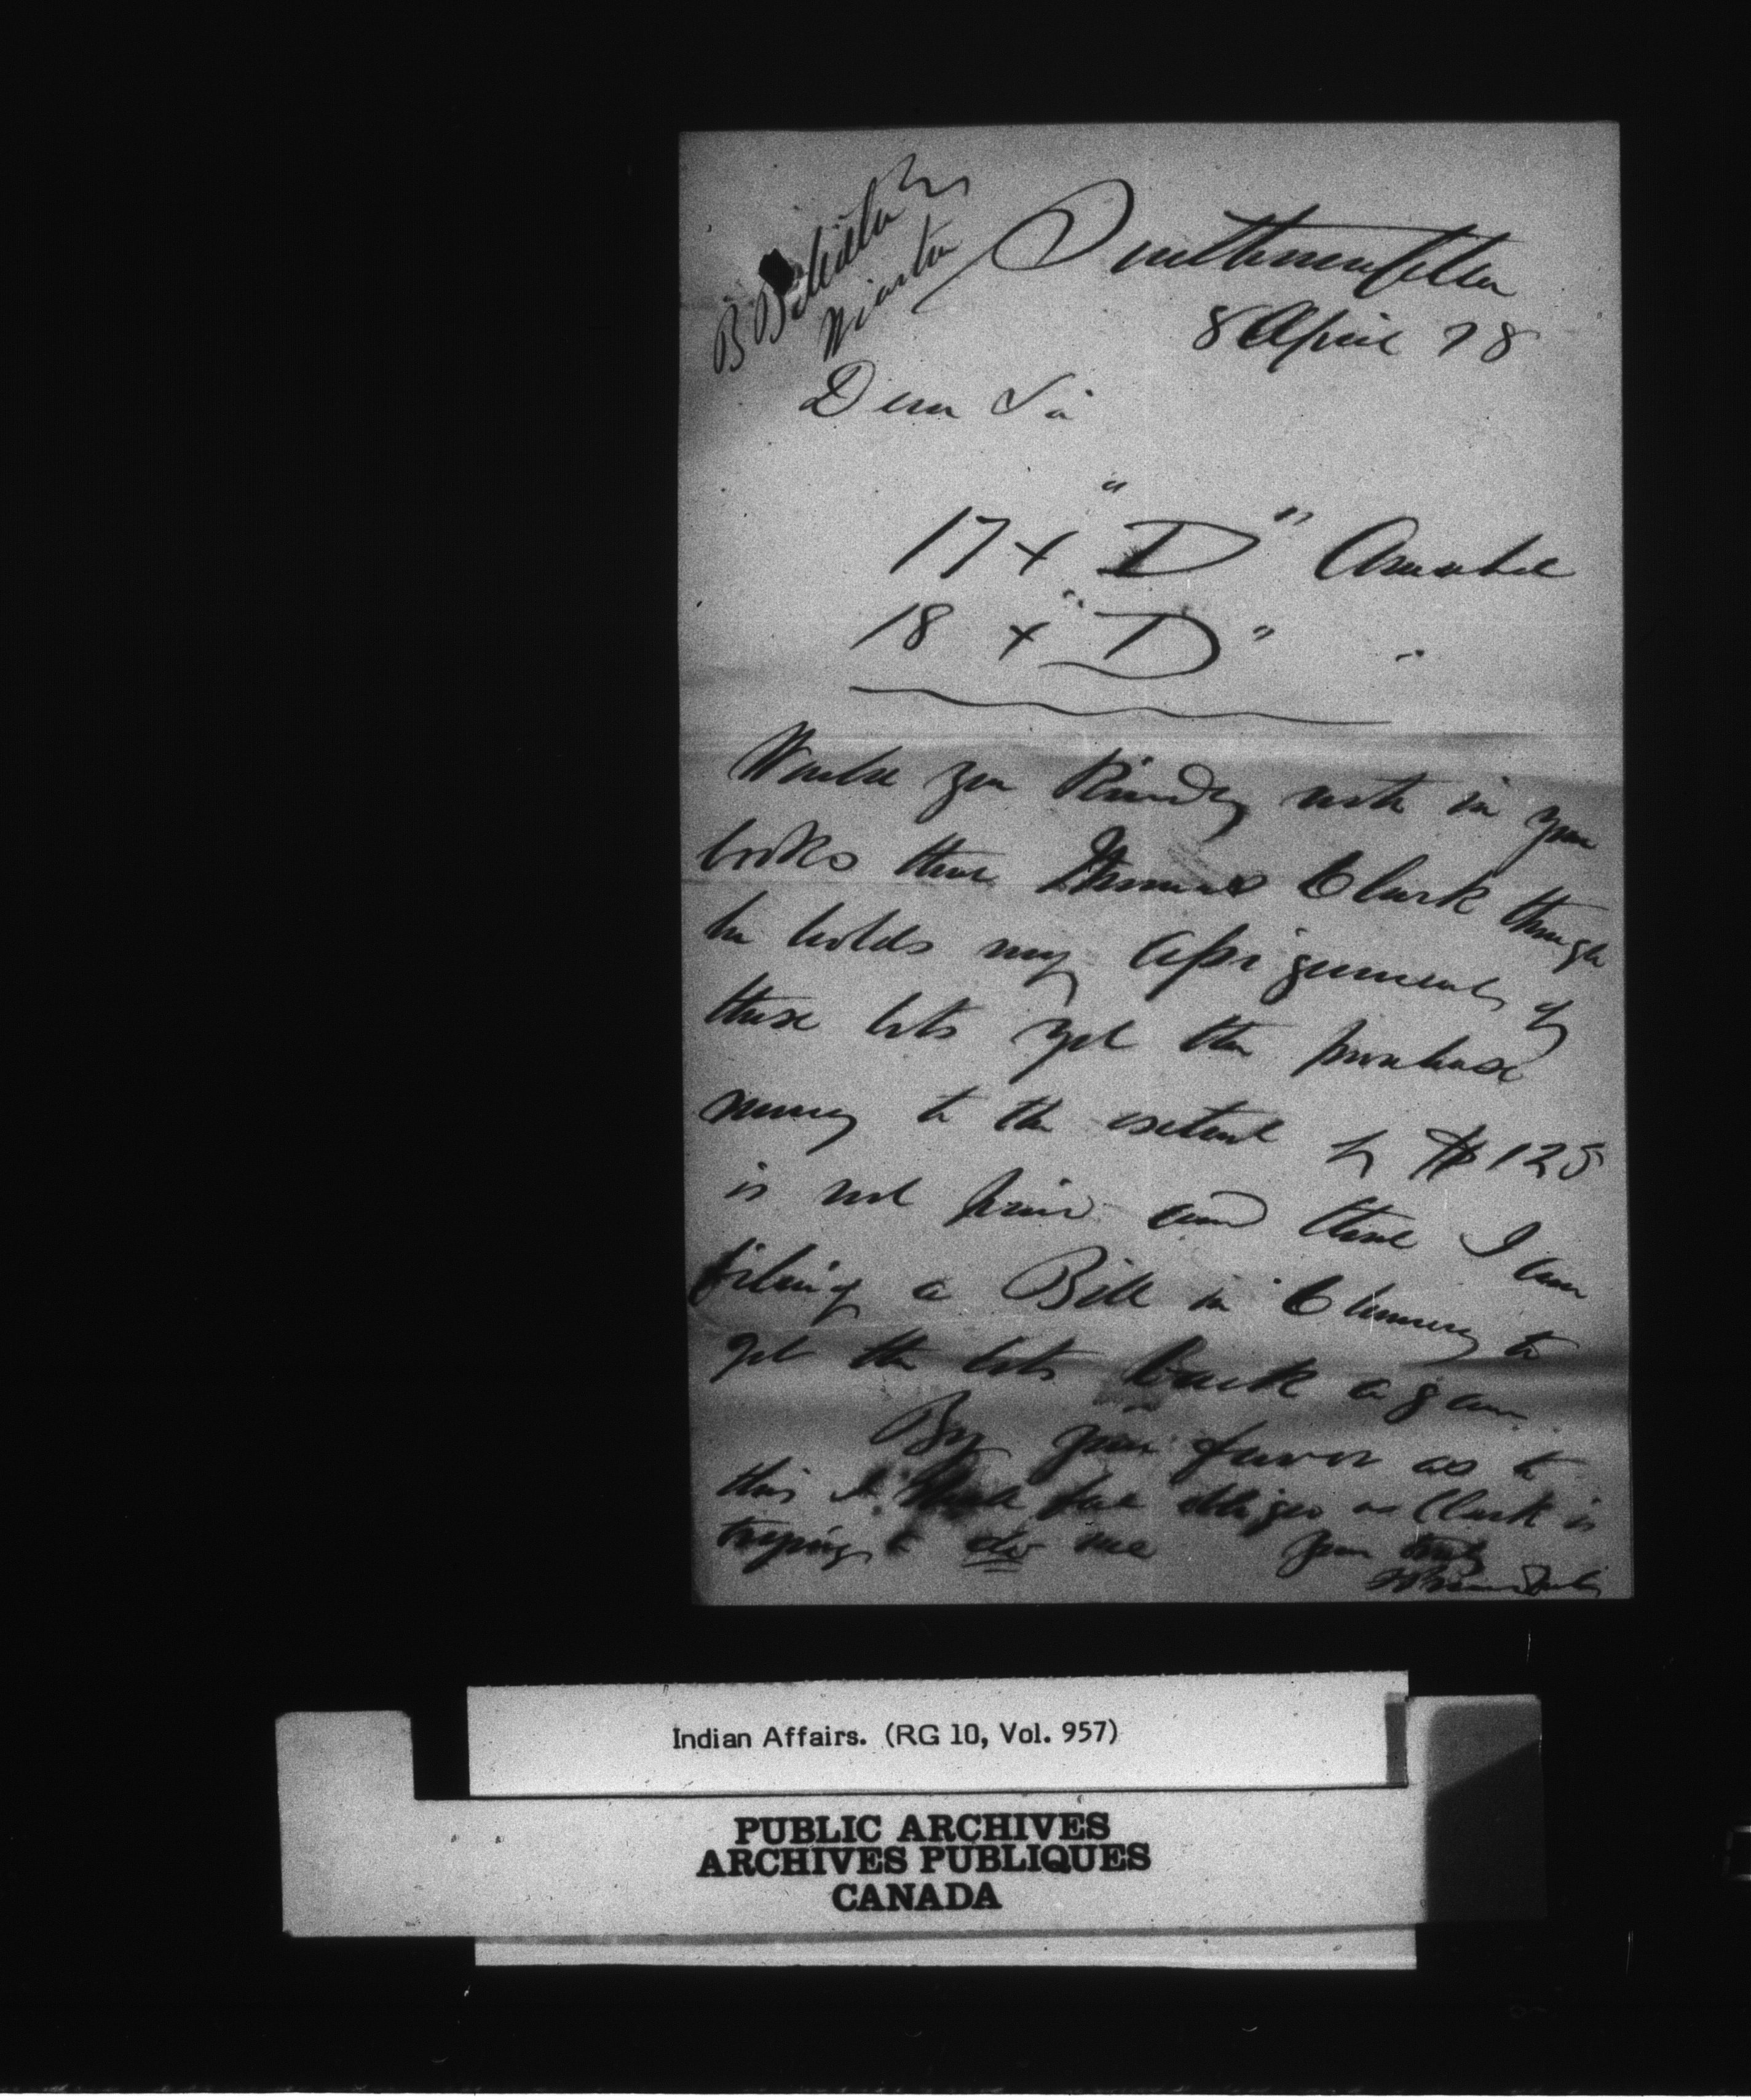 B B Miller
Wiarton
Southampton
8 April 78
Dear Sir
17 + "D" Amabel
18 + "D" "
Would you kindly note in your
books that Thomas Clark though
he holds my assignments of
these lots yet the purchase
money to the extent of $125
is not paid and that I am
filing a Bill in Chancery to
get the lots back again
By your favor as to
this I shall feel obliged as Clark is
trying to do me Yours truly
Indian Affairs. (RG 10, Vol. 957)
PUBLIC ARCHIVES
ARCHIVES PUBLIQUES
CANADA